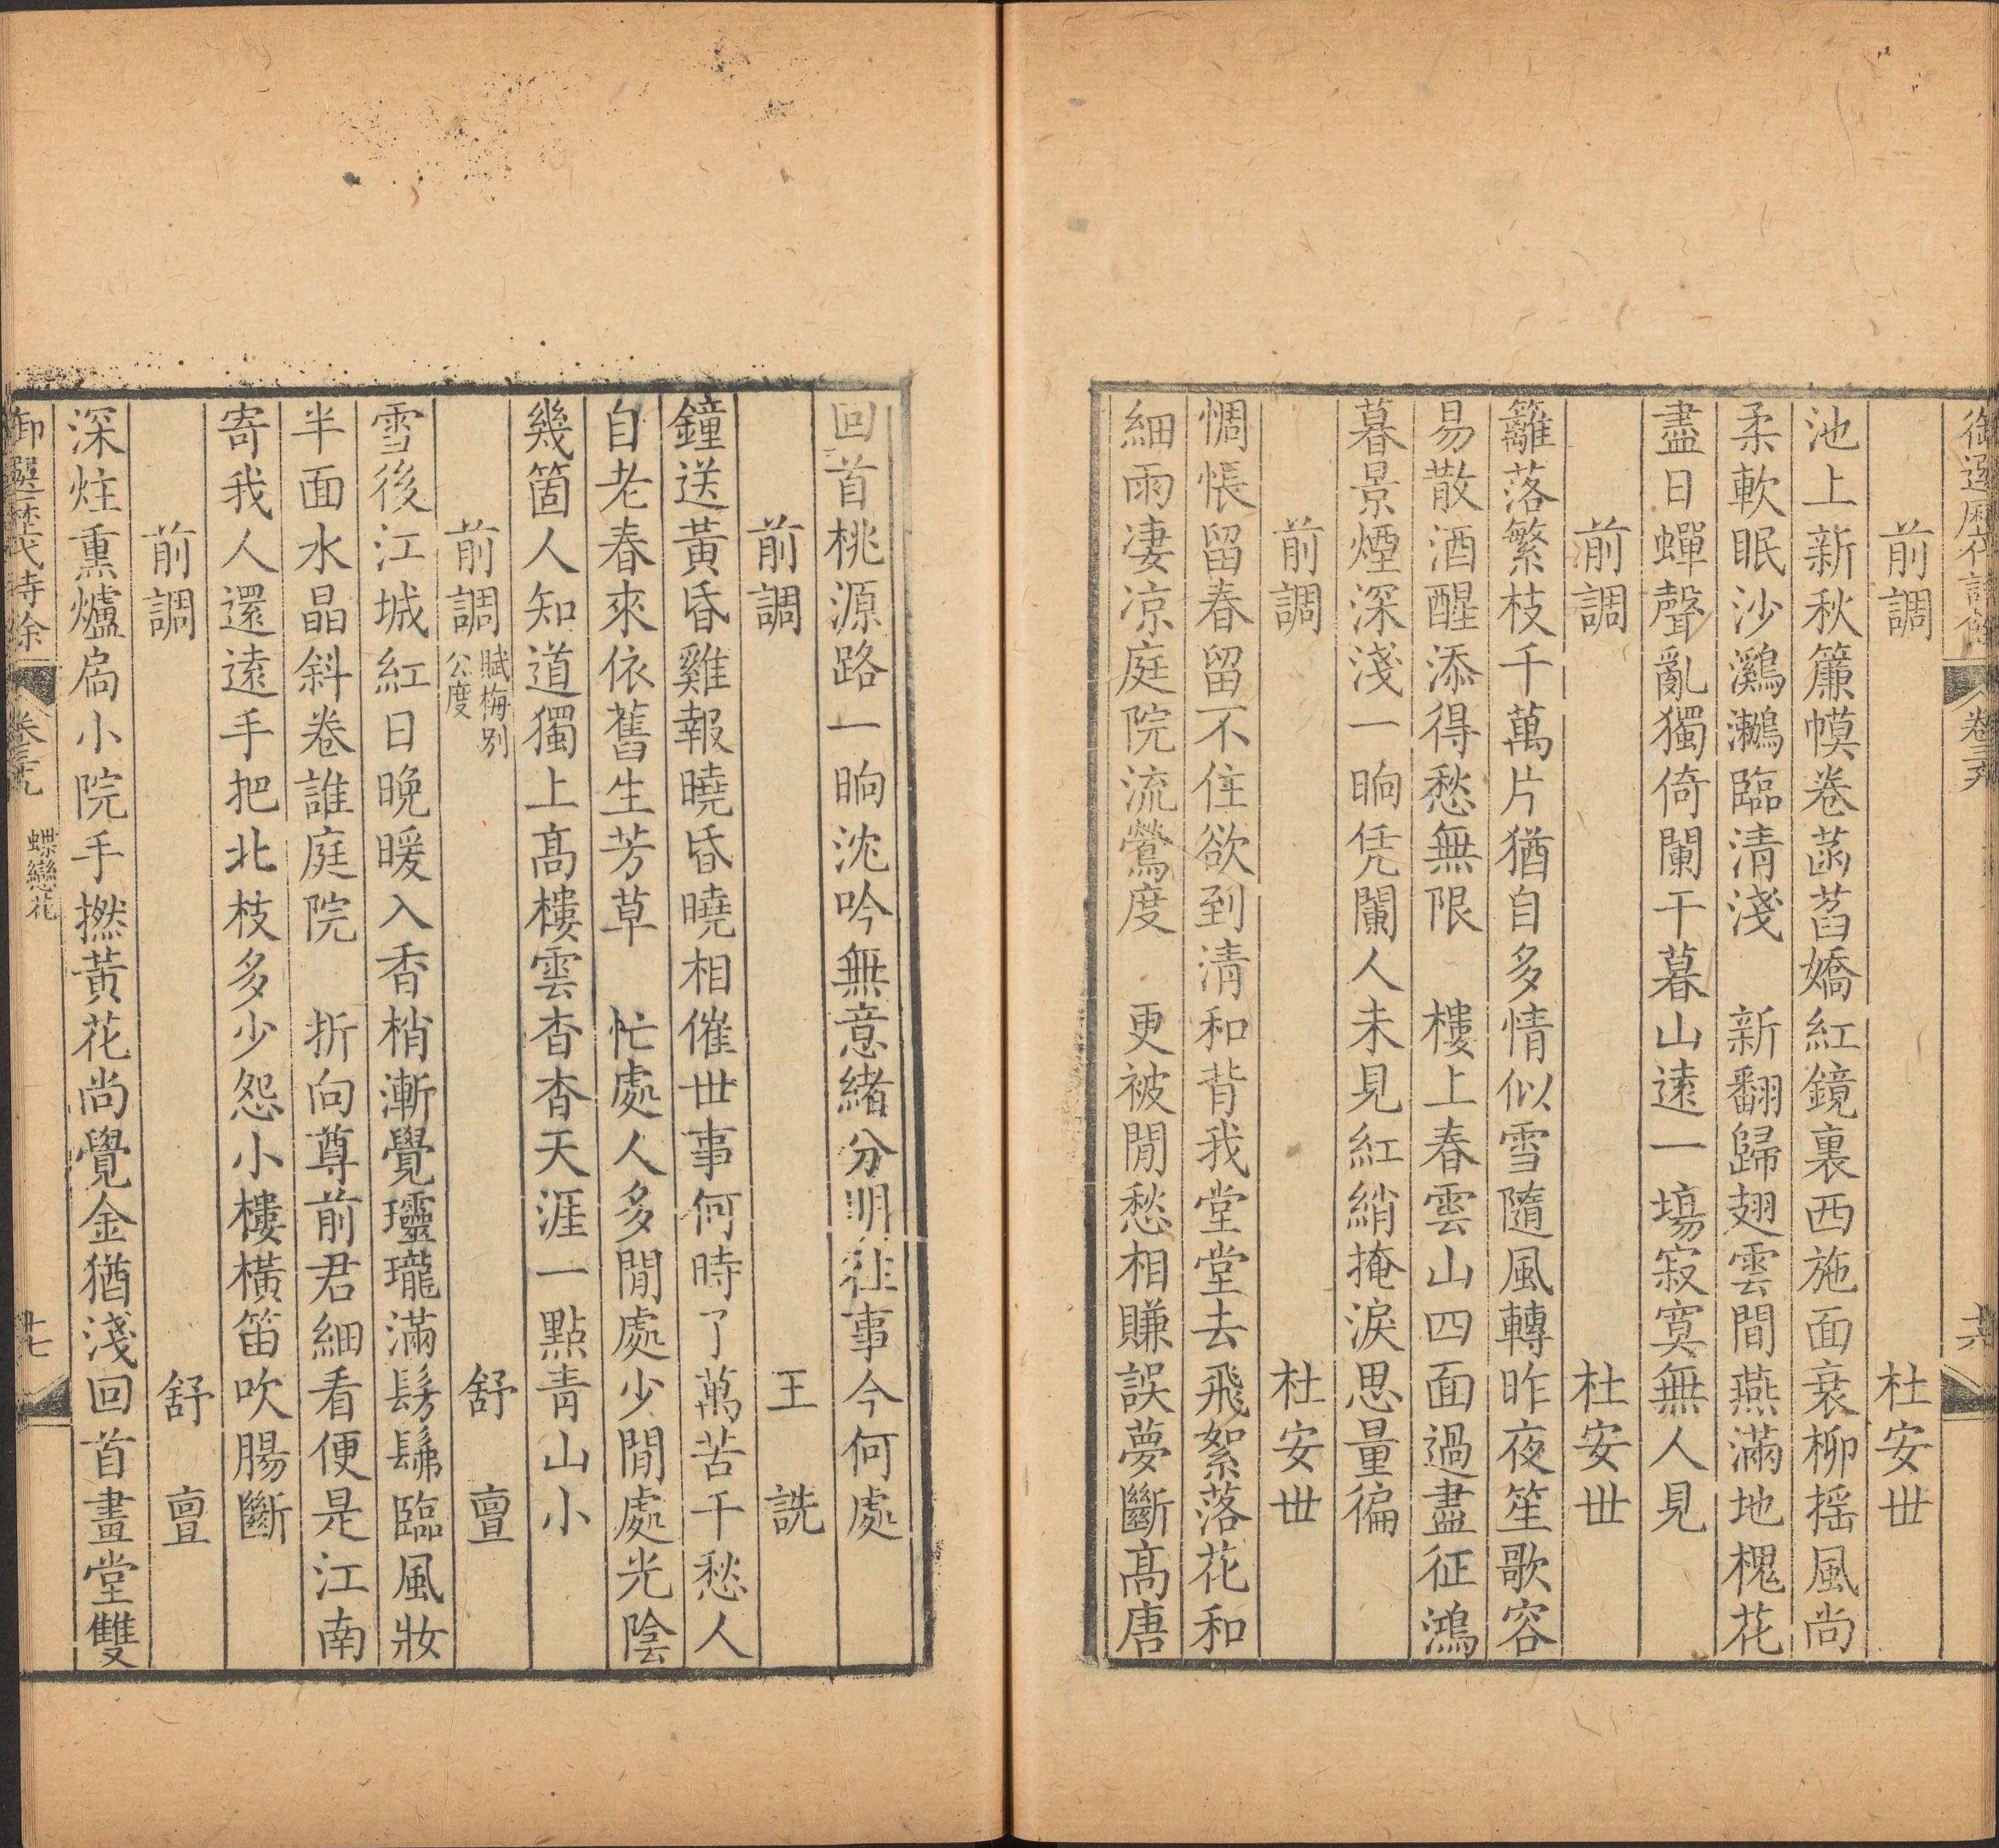 御選歷代詩餘 卷三十九 十六
前調 杜安世
池上新秋簾幙卷菡萏嬌紅鏡裏西施面衰柳揺風尚
柔軟眠沙鸂鶒臨清淺 新翻歸翅雲間燕滿地槐花
盡日蟬聲亂獨倚闌干暮山遠一塲寂寞無人見
前調 杜安世
籬落繁枝千萬片猶自多情似雪隨風轉昨夜笙歌容
易散酒醒添得愁無限 樓上春雲山四面過盡征鴻
暮景煙深淺一晌凭闌人未見紅綃掩淚思量徧
前調 杜安世
惆悵留春留不住欲到清和背我堂堂去飛絮落花和
細雨凄凉庭院流鶯度 更被閒愁相賺誤夢斷髙唐
回首桃源路一晌沈吟無意緒分明往事今何處
前調 王詵
鐘送黃昏雞報曉昏曉相催世事何時了萬苦千愁人
自老春來依舊生芳草 忙處人多閒處少閒處光陰
幾箇人知道獨上髙樓雲杳杳天涯一點青山小
前調 賦梅别公度 舒亶
雪後江城紅日晚暖入香梢漸覺瓏瓏滿髣髴臨風妝
半面水晶斜卷誰庭院 折向尊前君細看便是江南
寄我人還遠手把北枝多少怨小樓橫笛吹腸斷
前調 舒亶
深炷熏爐扄小院手撚黃花尚覺金猶淺回首畫堂雙
御選歷代詩餘 卷三十九 蝶戀花 十七